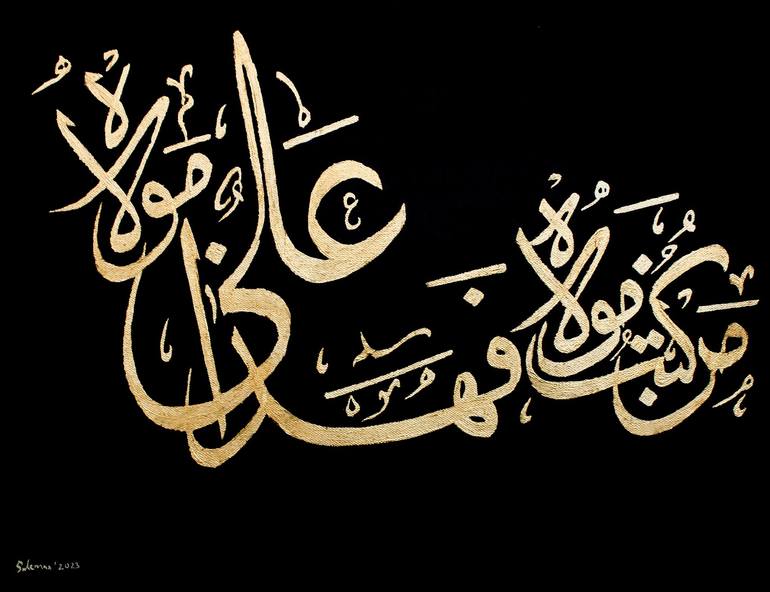 من كنت مولاه فهذا علي مولاه
Suleman '2023